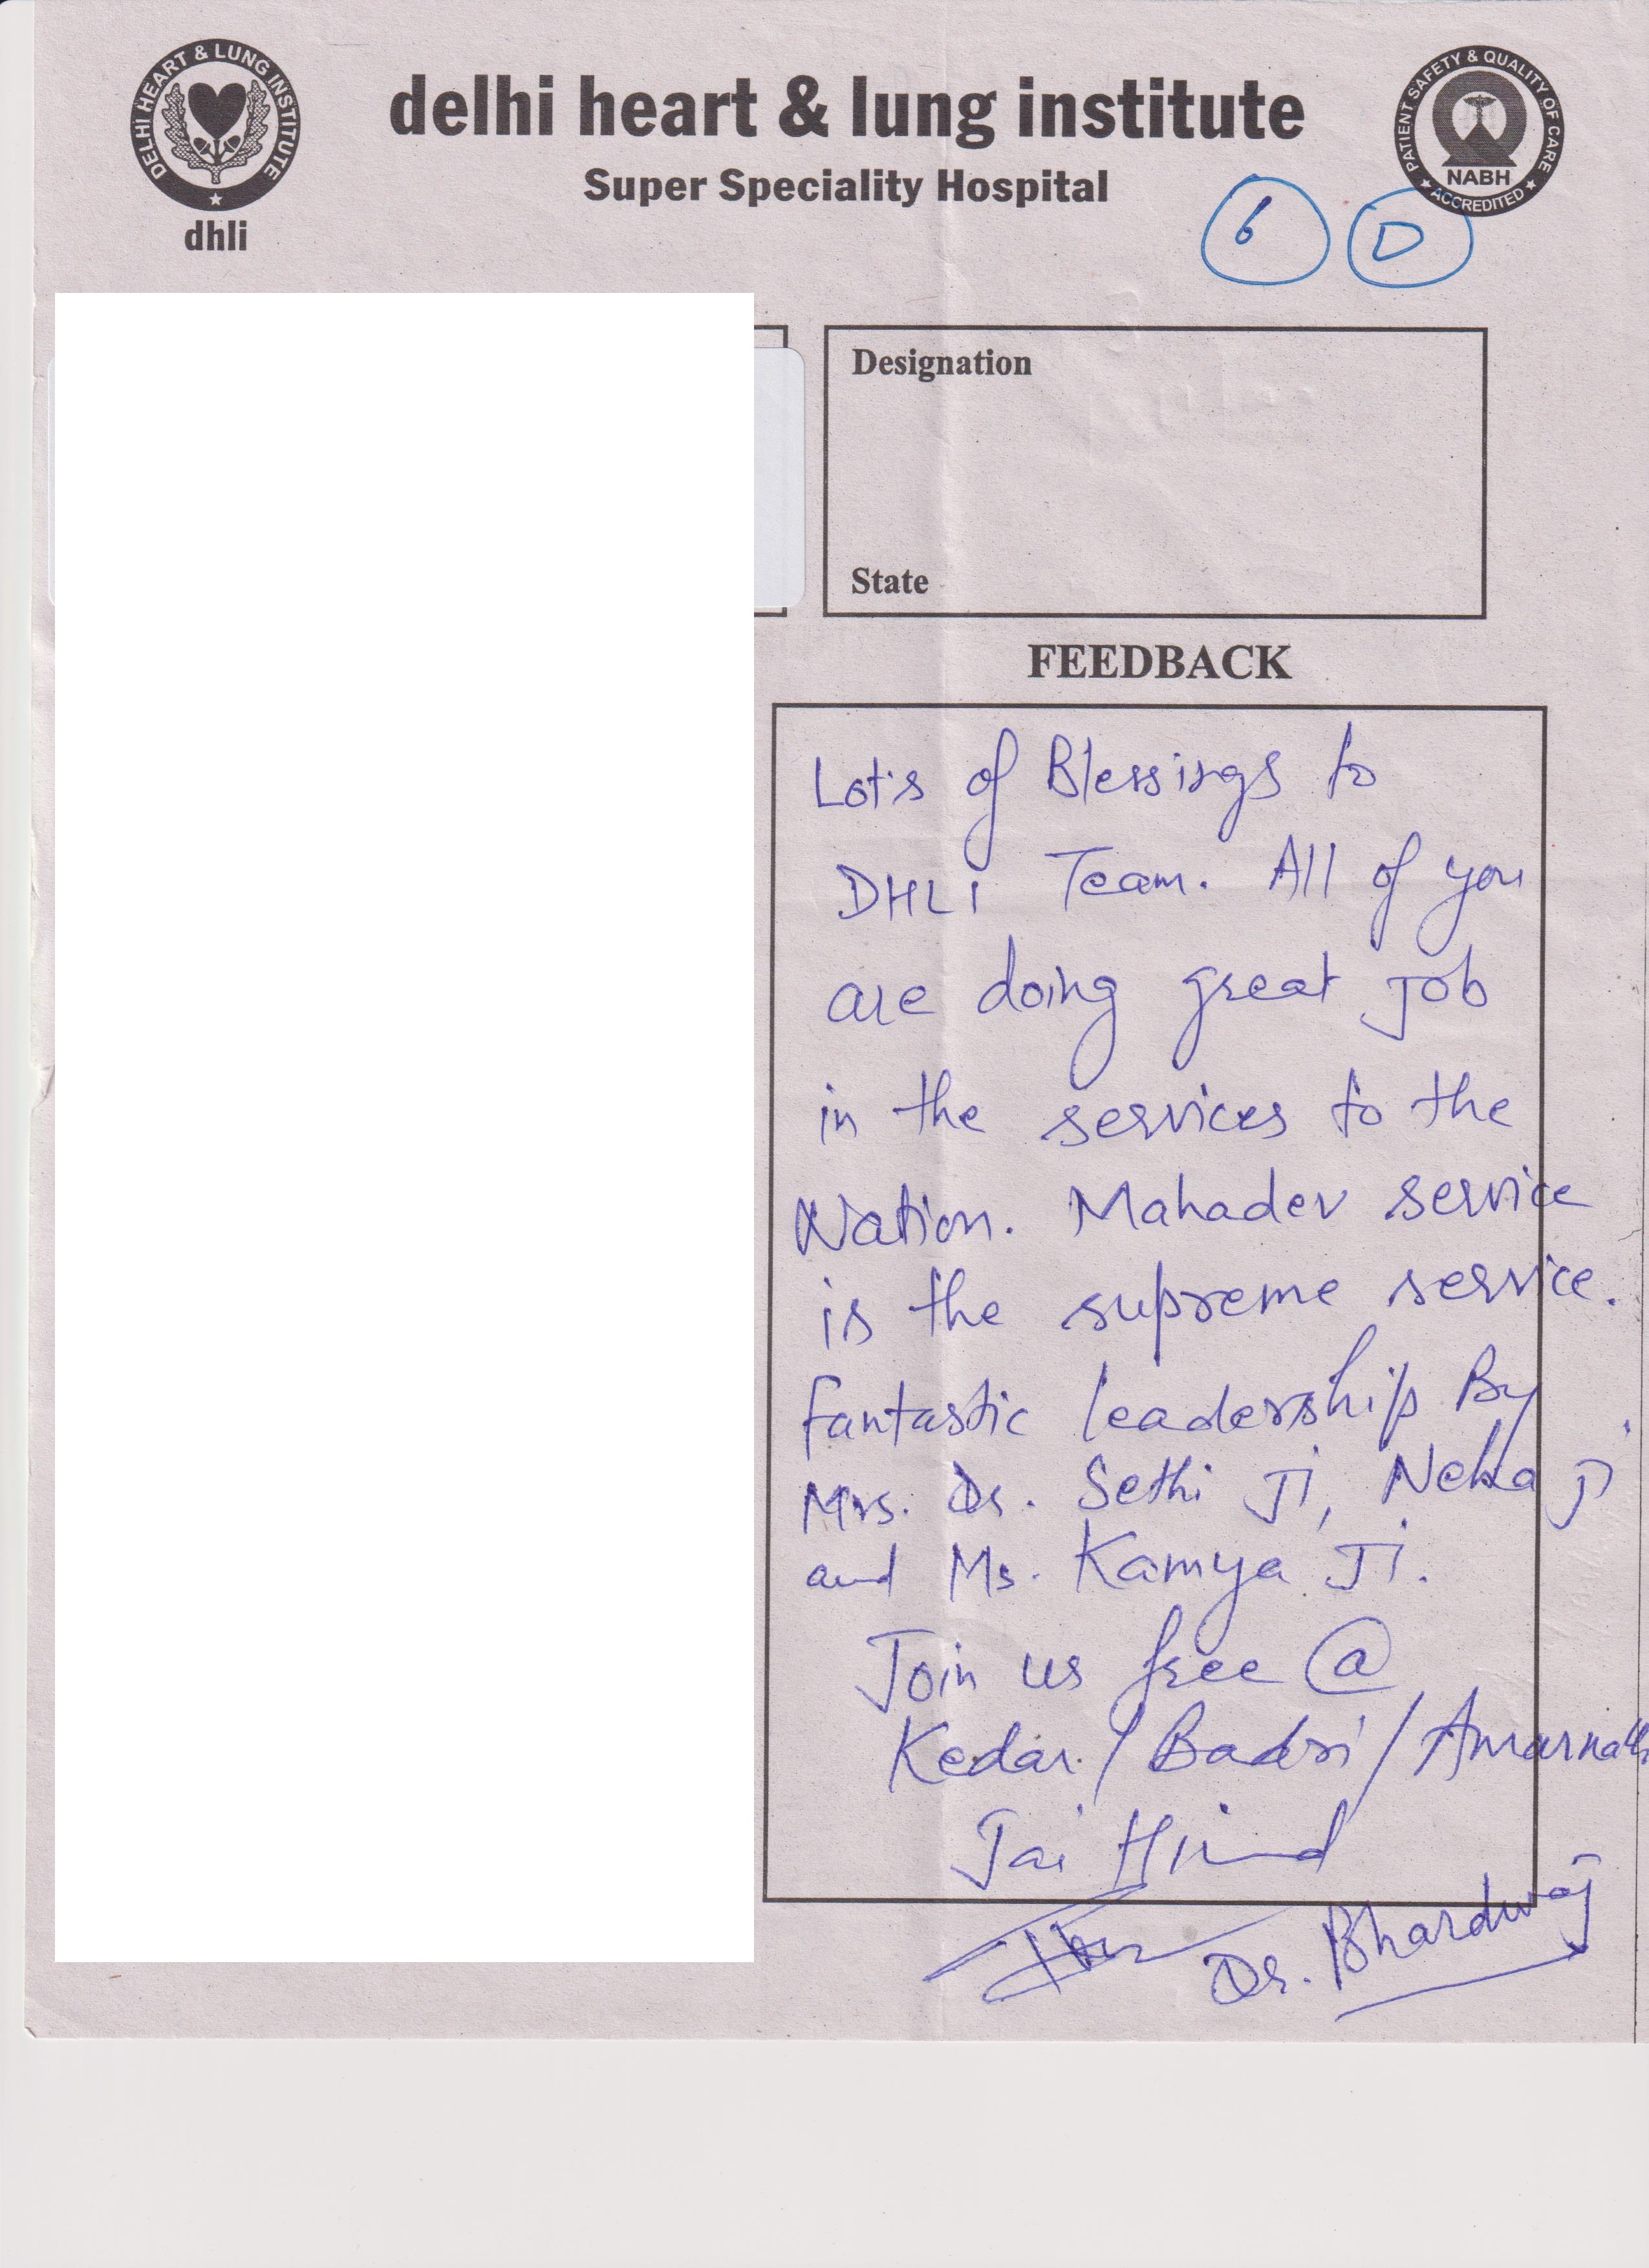 DELHI HEART & LUNG INSTITUTE
dhli
delhi heart & lung institute
Super Speciality Hospital
PATIENT SAFETY & QUALITY OF CARE
NABH
ACCREDITED
6 D
Designation
State
FEEDBACK
Lot's of Blessings to
DHLI Team. All of you
are doing great Job
in the services to the
Nation. Mahadev service
is the supreme service.
Fantastic leadership By
Mrs. Dr. Sethi Ji, Neha Ji
and Ms. Kamya Ji.
Join us free @
Kedar / Badri / Amarnath
Jai Hind
Dr. Bhardwaj